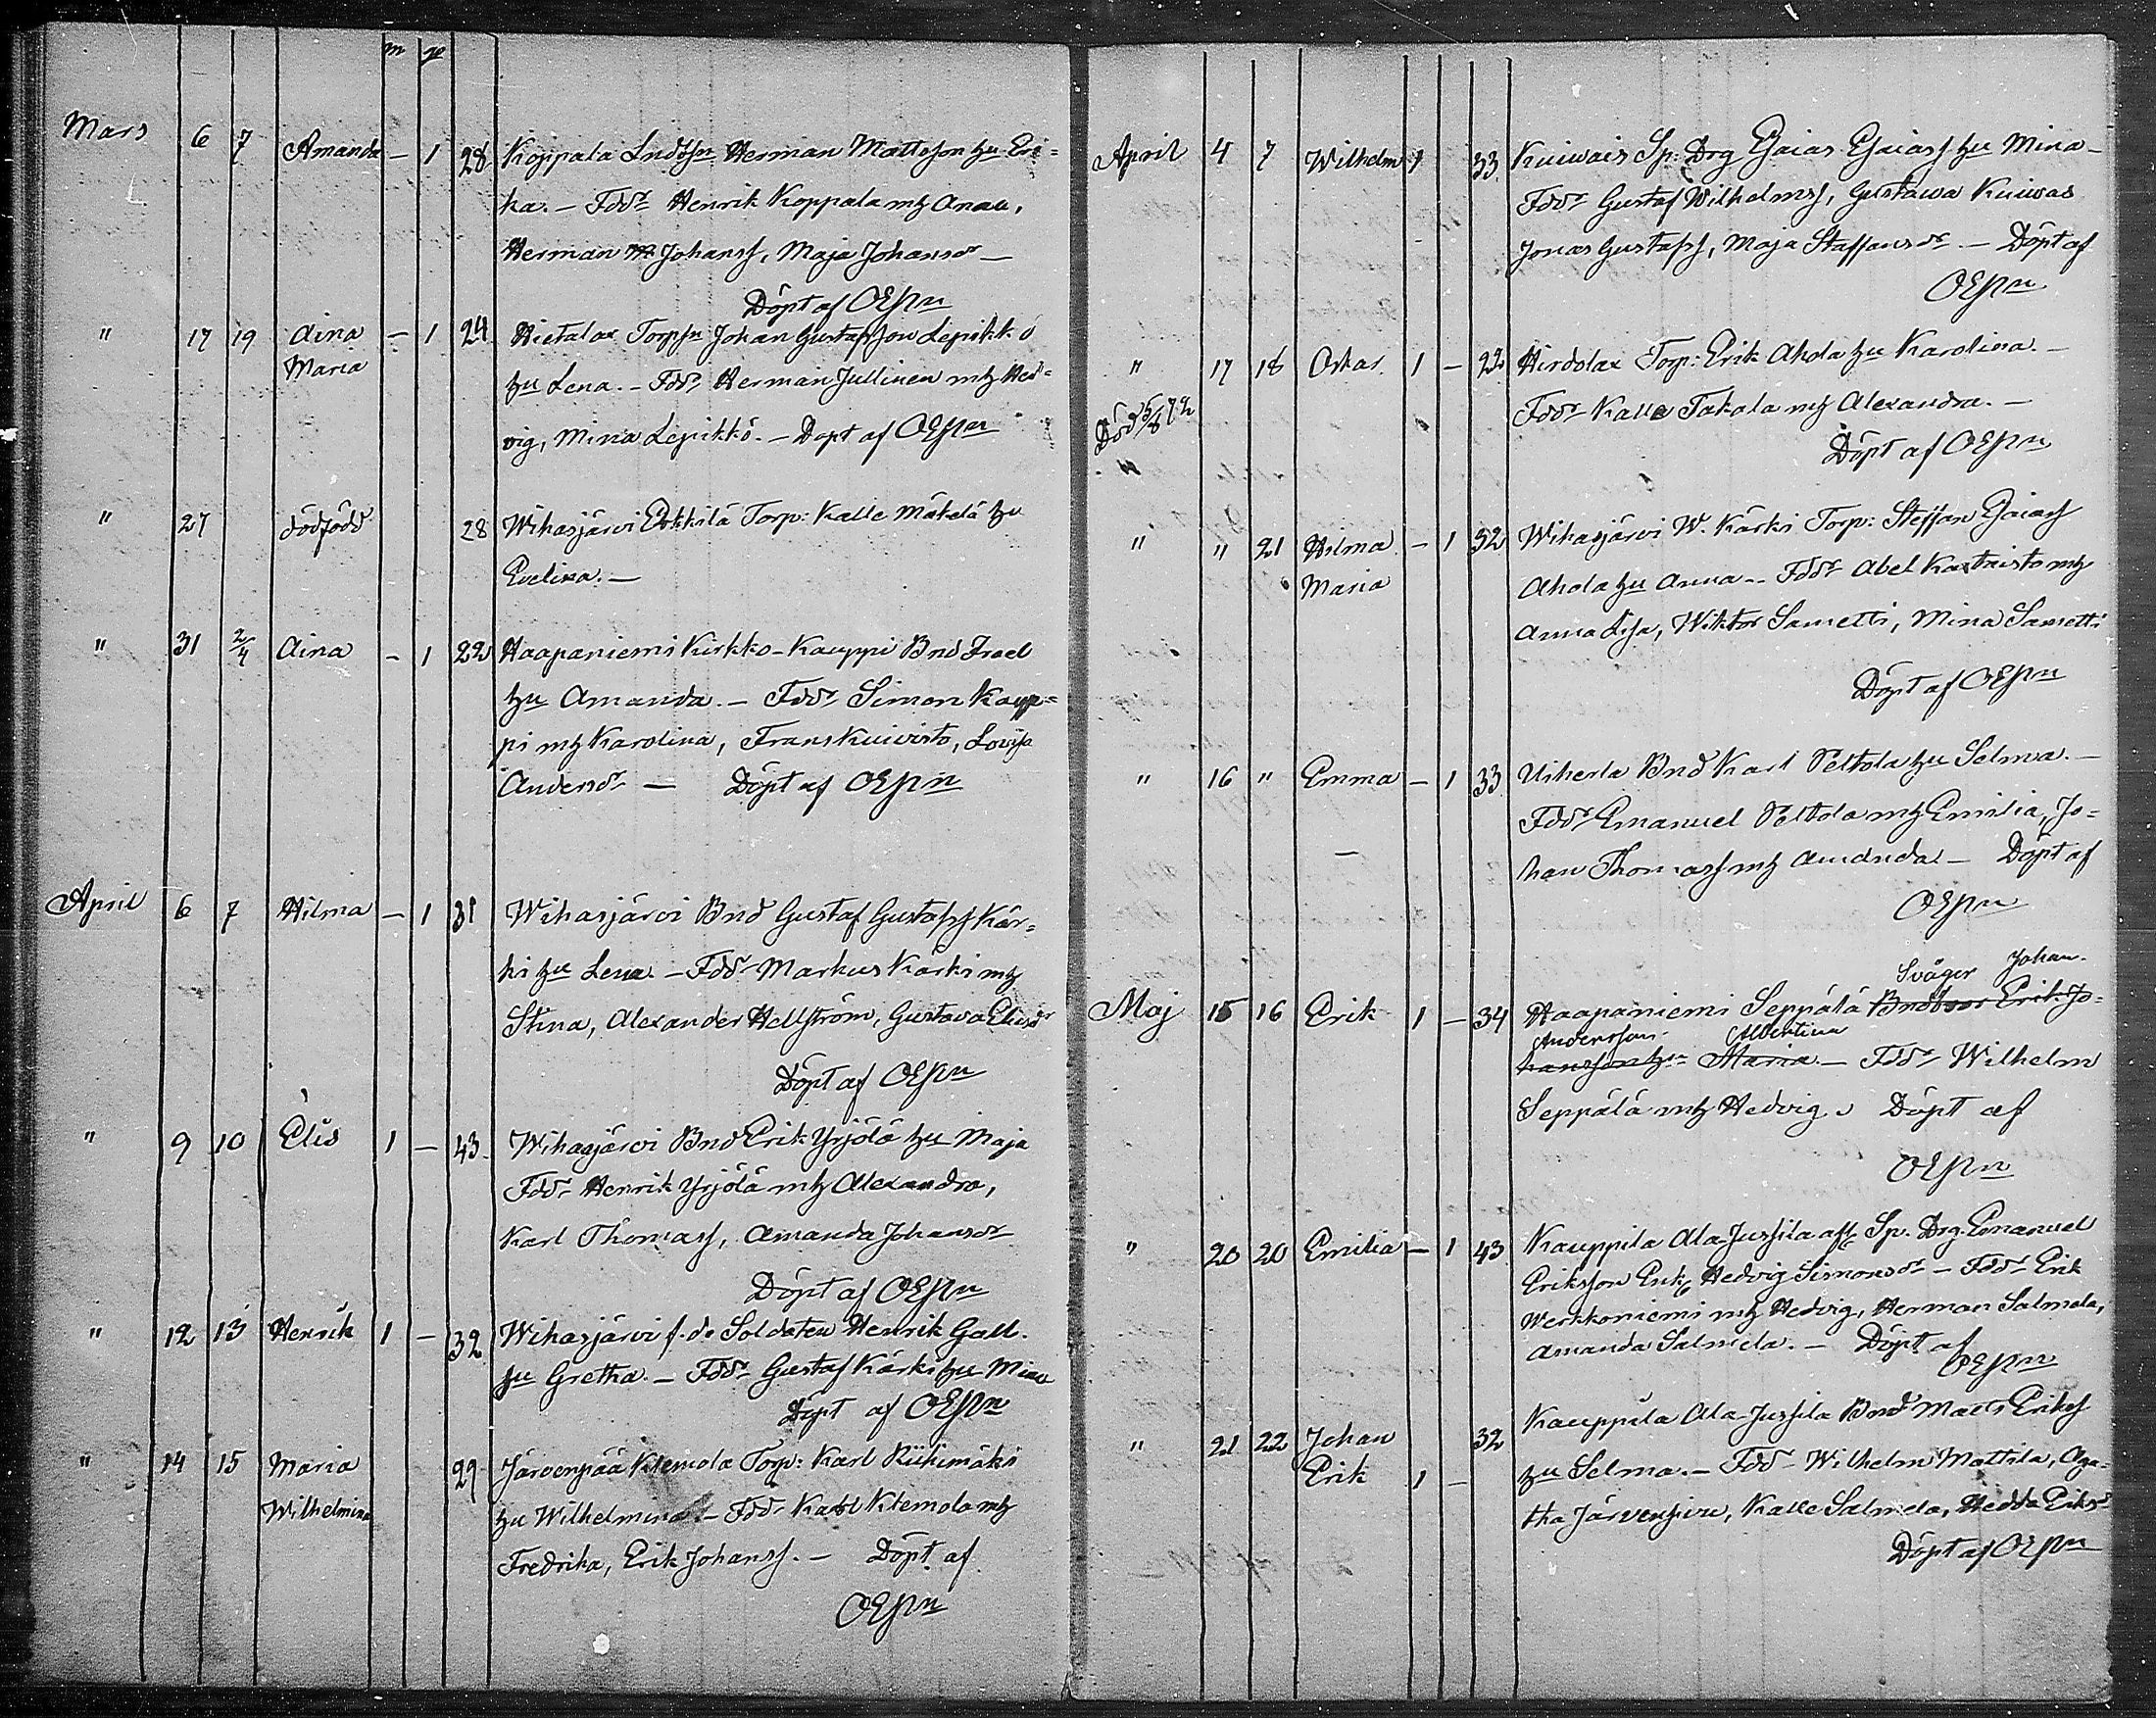 m q
Mars 6 7 Amanda — 1 28 Koppala Herman Mattsson hu Eri=
ka. — Fddr Henrik Koppala mh Anna,
Herman Johanss, Maja Johansdr —
Döpt af OEPrn
" 17 19 Aina — 1 24 Hietalax Torpsn Johan Gustafsson Lepikkö
Maria hu Lena. — Fddr Herman Jullinen mh Hed=
vig, Mina Lepikkö. — Döpt af OEPrn
" 27 dödfödd 28 Wihasjärvi Erkkilä Torp: Kalle Mäkelä hu
Evelina. —
" 31 2/4 Aina — 1 22 Haapaniemi Kirkko-Kauppi Bnd Israel
hu Amanda. — Fddr Simon Kaup=
pi mh Karolina, Frans Kuivisto, Lovisa
Andersdr — Döpt af OEPrn
April 6 7 Hilma — 1 31 Wihasjärvi Bnd Gustaf Gustafss Kär=
ki hu Lena. — Fddr Markus Kärki mh
Stina, Alexander Hellström, Gustava Eliasdr
Döpt af OEPrn
" 9 10 Elis 1 — 43 Wihasjärvi Bnd Erik Yrjölä hu Maja
Fddr Henrik Yrjölä mh Alexandra,
Karl Thomass, Amanda Johansdr
Döpt af OEPrn
" 12 13 Henrik 1 — 32 Wihasjärvi f.d. Soldaten Henrik Gall.
hu Gretha. — Fddr Gustaf Kärki hu Mina
Döpt af OEPrn
" 14 15 Maria 29 Järvenpää Klemola Torp: Karl Riihimäki
Wilhelmina hu Wilhelmina. — Fddr Karl Klemola mh
Fredrika, Erik Johanss. — Döpt af
OEPrn
April 4 7 Wilhelm 1 33 Kuiwais Sp: Drg Esaias Esaiass hu Mina —
Fddr Gustaf Wilhelmss, Gustawa Kuiwas
Jonas Gustafss, Maja Staffansdr. — Döpt af
OEPrn
" 17 18 Oskar 1 — 22 Hirdolax Torp: Erik Ahola hu Karolina. —
Död 5/8 72 Fddr Kalle Takala mh Alexandra. —
Döpt af OEPrn
" " 21 Hilma — 1 32 Wihasjärvi W. Kärki Torp: Steffan Esaiass
Maria Ahola hu Anna — Fddr Abel mh
Anna Lisa, Wiktor Sametti, Mina Sametti
Döpt af OEPrn
" 16 " Emma — 1 33 Uiherla Bnd Karl Peltola hu Selma. —
Fddr Emanuel Peltola mh Emilia, Jo=
han Thomass mh Amanda. — Döpt af
OEPrn
Svåger Johan
Maj 15 16 Erik 1 — 34 Haapaniemi Seppälä Bndson Erik Jo=
Andersson Albertina
hansson hu Maria. — Fddr Wilhelm
Seppälä mh Hedvig. Döpt af
OEPrn
" 20 20 Emilia — 1 43 Kauppila Ala-Jussila Sp. Drg. Emanuel
Eriksson Enk, Hedvig Simonsdr — Fddr Erik
Werkkoniemi mh Hedvig, Herman Salmela,
Amanda Salmela. — Döpt af
OEPrn
" 21 22 Johan 32 Kauppila Ala-Jussila Bnd Matts Erikss
Erik 1 — hu Selma. — Fddr Wilhelm Mattila, Aga=
tha Järvensivu, Kalle Salmela, Hedda Eriksdr
Döpt af OEPrn